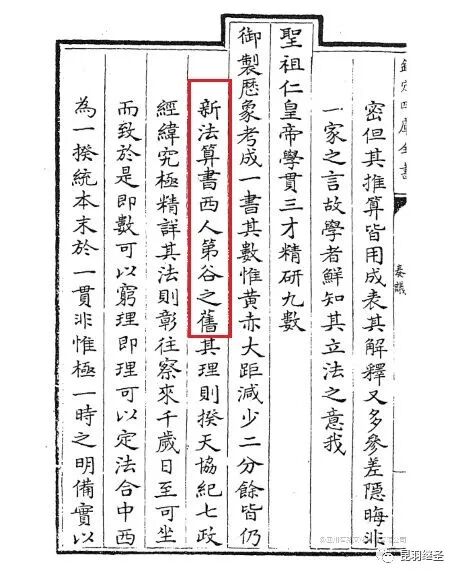 欽定四庫全書
奏議
密但其推算皆用成表其解釋又多參差隱晦非
一家之言故學者鮮知其立法之意我
聖祖仁皇帝學貫三才精研九數
御製歷象考成一書其數惟黃赤大距減少二分餘皆仍
新法算書西人第谷之舊其理則揆天協紀七政
經緯究極精詳其法則彰往察來千歲日至可坐
而致於是即數可以窮理即理可以定法合中西
為一揆統本末於一貫非惟極一時之明備實以
昆羽继圣